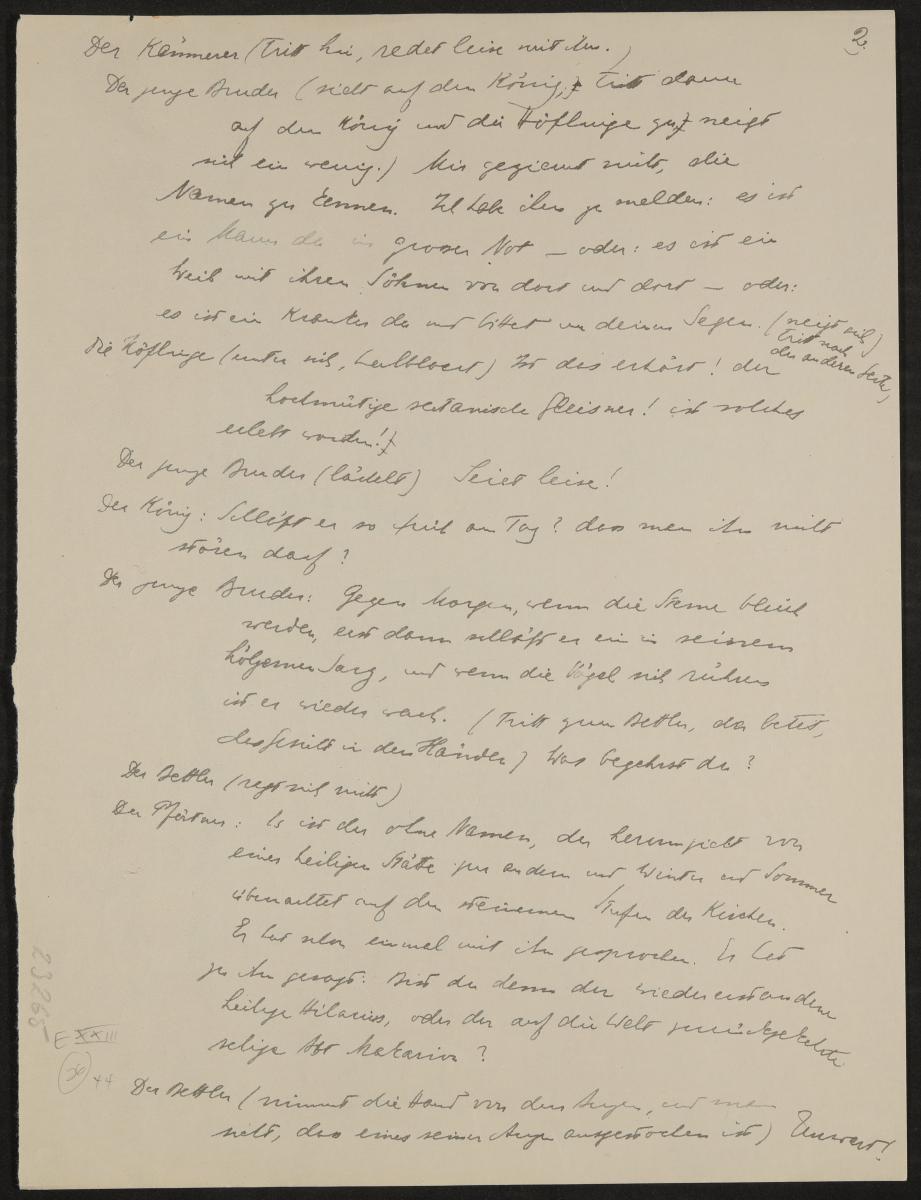 2.
Der Kämmerer (tritt hin, redet leise mit ihm.)
Der junge Bruder (sieht auf den König, tritt dann
auf den König und die Höflinge zu, neigt
sich ein wenig.) Mir geziemt nicht, die
Namen zu kennen. Ich hab ihm zu melden: es ist
ein Mann da in grosser Not — oder: es ist ein
Weib mit ihren Söhnen von dort und dort — oder:
es ist ein Kranker da und bittet um deinen Segen. (neigt sich,
tritt nach
der anderen Seite,)
Die Höflinge (unter sich, halblaut) Ist das erhört! der
hochmütige satanische Gleisner! ist solches
erlebt worden!
Der junge Bruder (lächelt) Seiet leise!
Der König: Schläft er so früh am Tag? dass man ihn nicht
stören darf?
Der junge Bruder: Gegen Morgen, wenn die Sterne bleich
werden, erst dann schläft er ein in seinem
hölzernen Sarg, und wenn die Vögel sich rühren
ist er wieder wach. (Tritt zum Bettler, der betet,
das Gesicht in den Händen) Was begehrst du?
Der Bettler (regt sich nicht)
Der Pförtner: Es ist der ohne Namen, der herumzieht von
einer heiligen Stätte zur andern und Winter und Sommer
übernachtet auf den steinernen Stufen der Kirchen.
Er hat schon einmal mit ihm gesprochen. Er hat
zu ihm gesagt: Bist du denn der wiedererstandene
heilige Hilarius, oder der auf die Welt zurückgekehrte
selige Abt Makarios?
Der Bettler (nimmt die Hand von den Augen, und man
sieht, dass eines seiner Augen ausgestochen ist)
23265
E XXIII
44